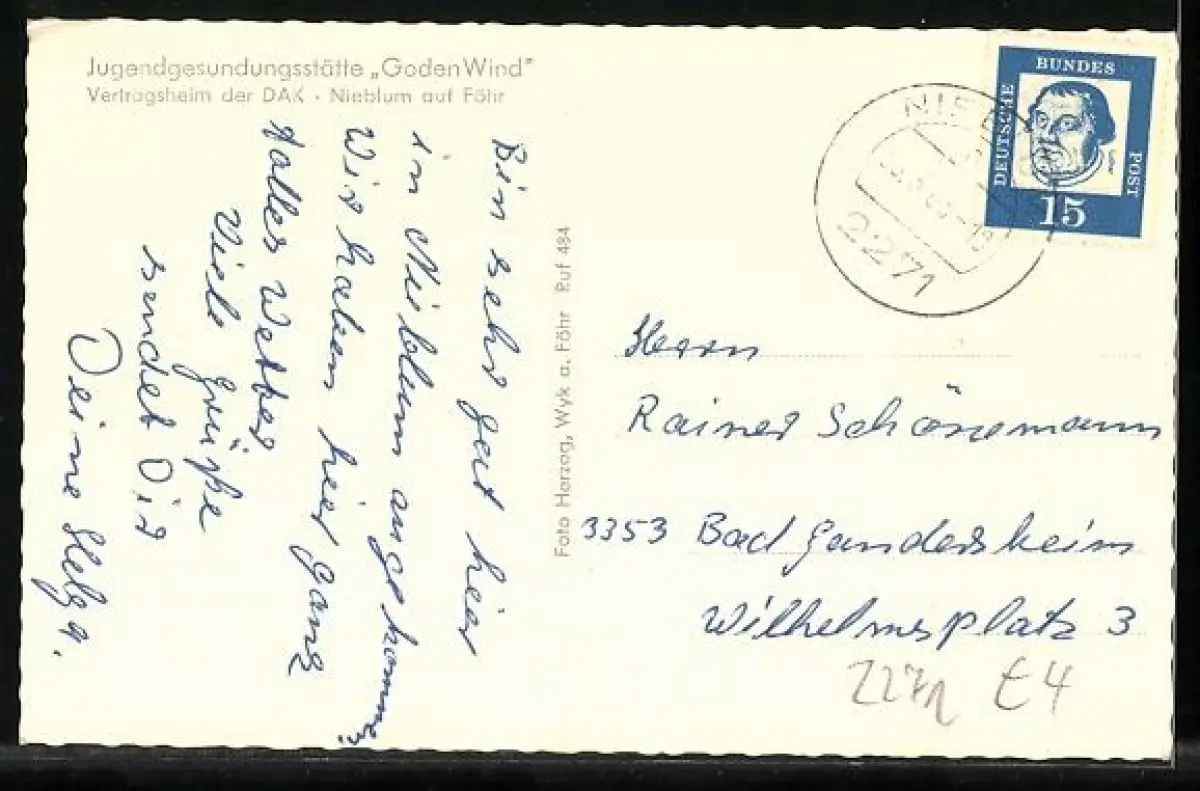 Jugendgesundungsstätte „Goden Wind"
Vertragsheim der DAK · Nieblum auf Föhr
Bin sehr gut hier
in Nieblum angekommen.
Wir haben hier ganz
tolles Wetter
Viele Grüße
sendet Dir
Deine Helga.
Foto Herzog, Wyk a. Föhr Ruf 484
DEUTSCHE
BUNDES
POST
15
2271
Herrn
Rainer Schönemann
3353 Bad Gandersheim
Wilhelmsplatz 3
2271 E4